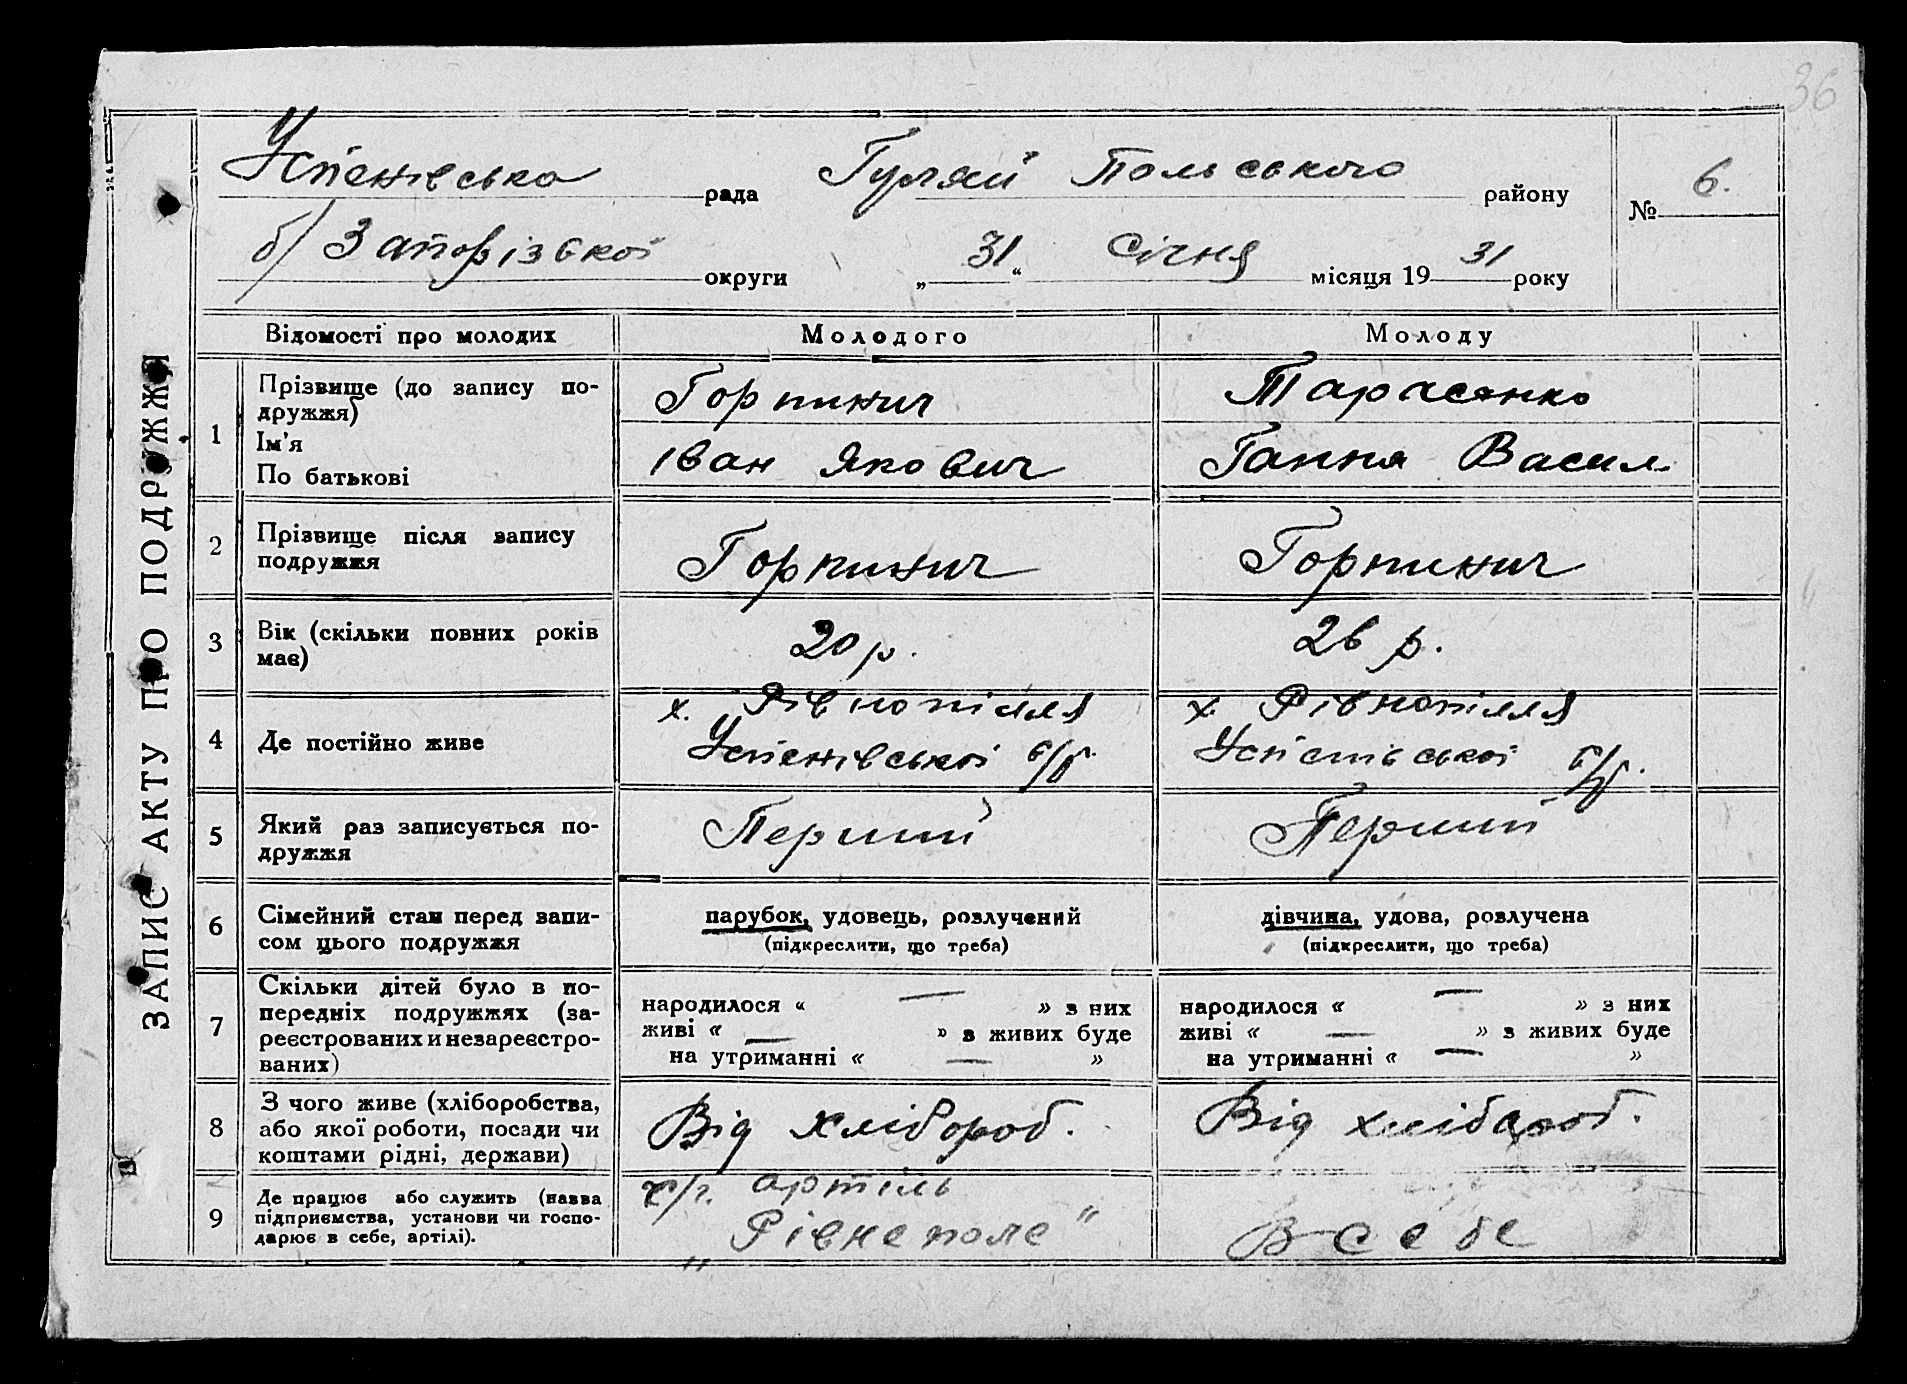 36
Успенівська рада Гуляй Польського району № 6.
б/Запорізької округи „31“ Січня місяця 1931 року
ЗАПИС АКТУ ПРО ПОДРУЖЖЯ
Відомості про молодих Молодого Молоду
1 Прізвище (до запису по-
дружжя) Горпинич Тарасенко
Ім'я
По батькові Іван Якович Ганна Васил
2 Прізвище після запису
подружжя Горпинич Горпинич
3 Вік (скільки повних років
має) 20 р. 26 р.
4 Де постійно живе х. Рівнопілля х. Рівнопілля
Успенівської с/р. Успенівської с/р.
5 Який раз записується по-
дружжя Перший Перший
6 Сімейний стан перед запи-
сом цього подружжя
парубок, удовець, розлучений дівчина, удова, розлучена
(підкреслити, що треба) (підкреслити, що треба)
7 Скільки дітей було в по-
передніх подружжях (за-
реєстрованих и незареєстро-
ваних)
народилося « — » з них народилося « — » з них
живі « — » з живих буде живі « — » з живих буде
на утриманні « — » на утриманні « — »
8 З чого живе (хліборобства,
або якої роботи, посади чи
коштами рідні, держави)
Від хлібороб. Від хлібороб.
9 Де працює або служить (назва
підприємства, установи чи госпо-
дарює в себе, артілі).
с/г. артіль
„Рівнеполе“ В себе